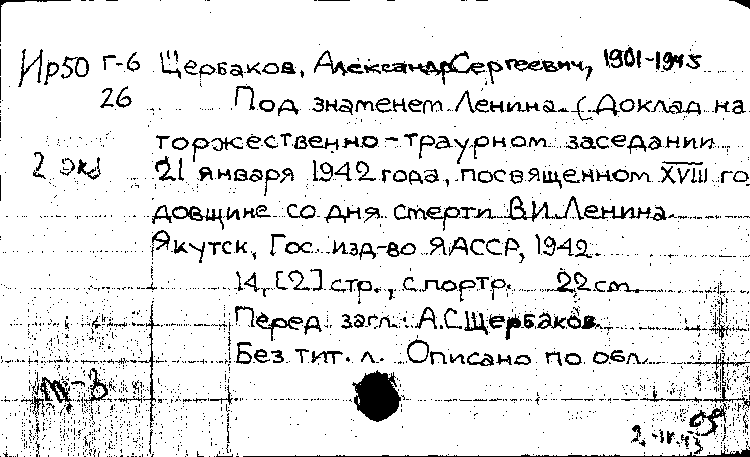 Ир50 Г-6 Щербаков, Александр Сергеевич, 1901-1945
26 Под знаменем Ленина. (Доклад на
торжественно-траурном заседании
2 экз 21 января 1942 года, посвященном XVIII го
довщине со дня смерти В.И. Ленина.
Якутск, Гос. изд-во ЯАССР, 1942.
14, [2] стр., с портр. 22 см.
Перед загл.: А.С. Щербаков.
Без тит. л. Описано по обл.